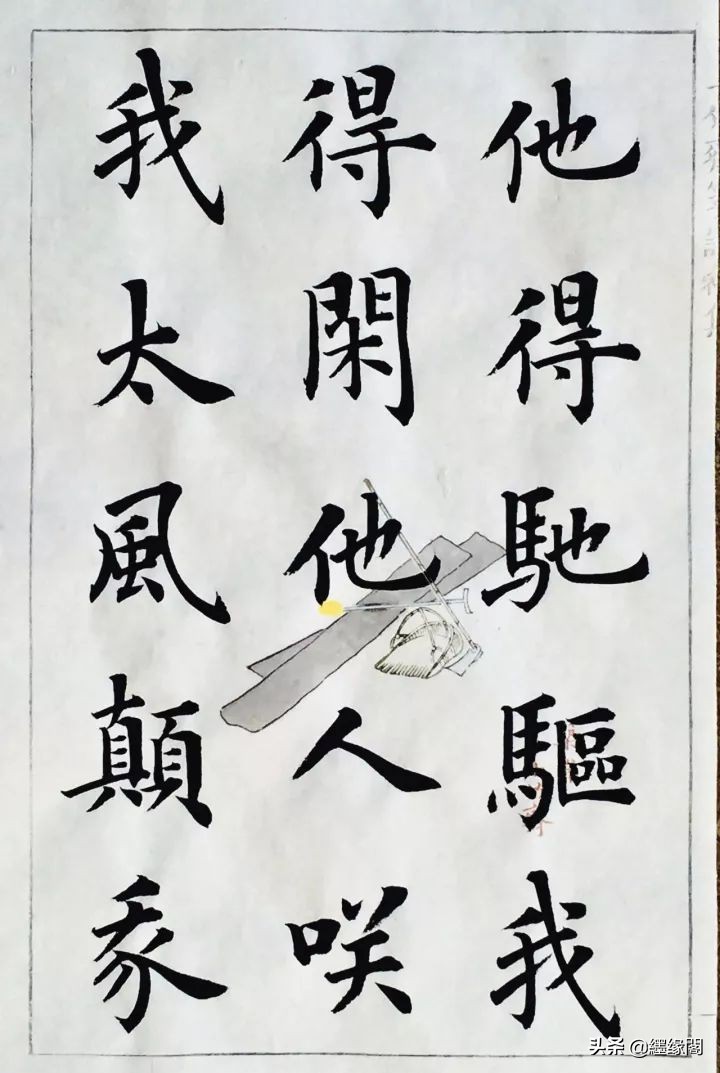 他得馳驅我
得閑他人咲
我太風顛
头条 @缘閣